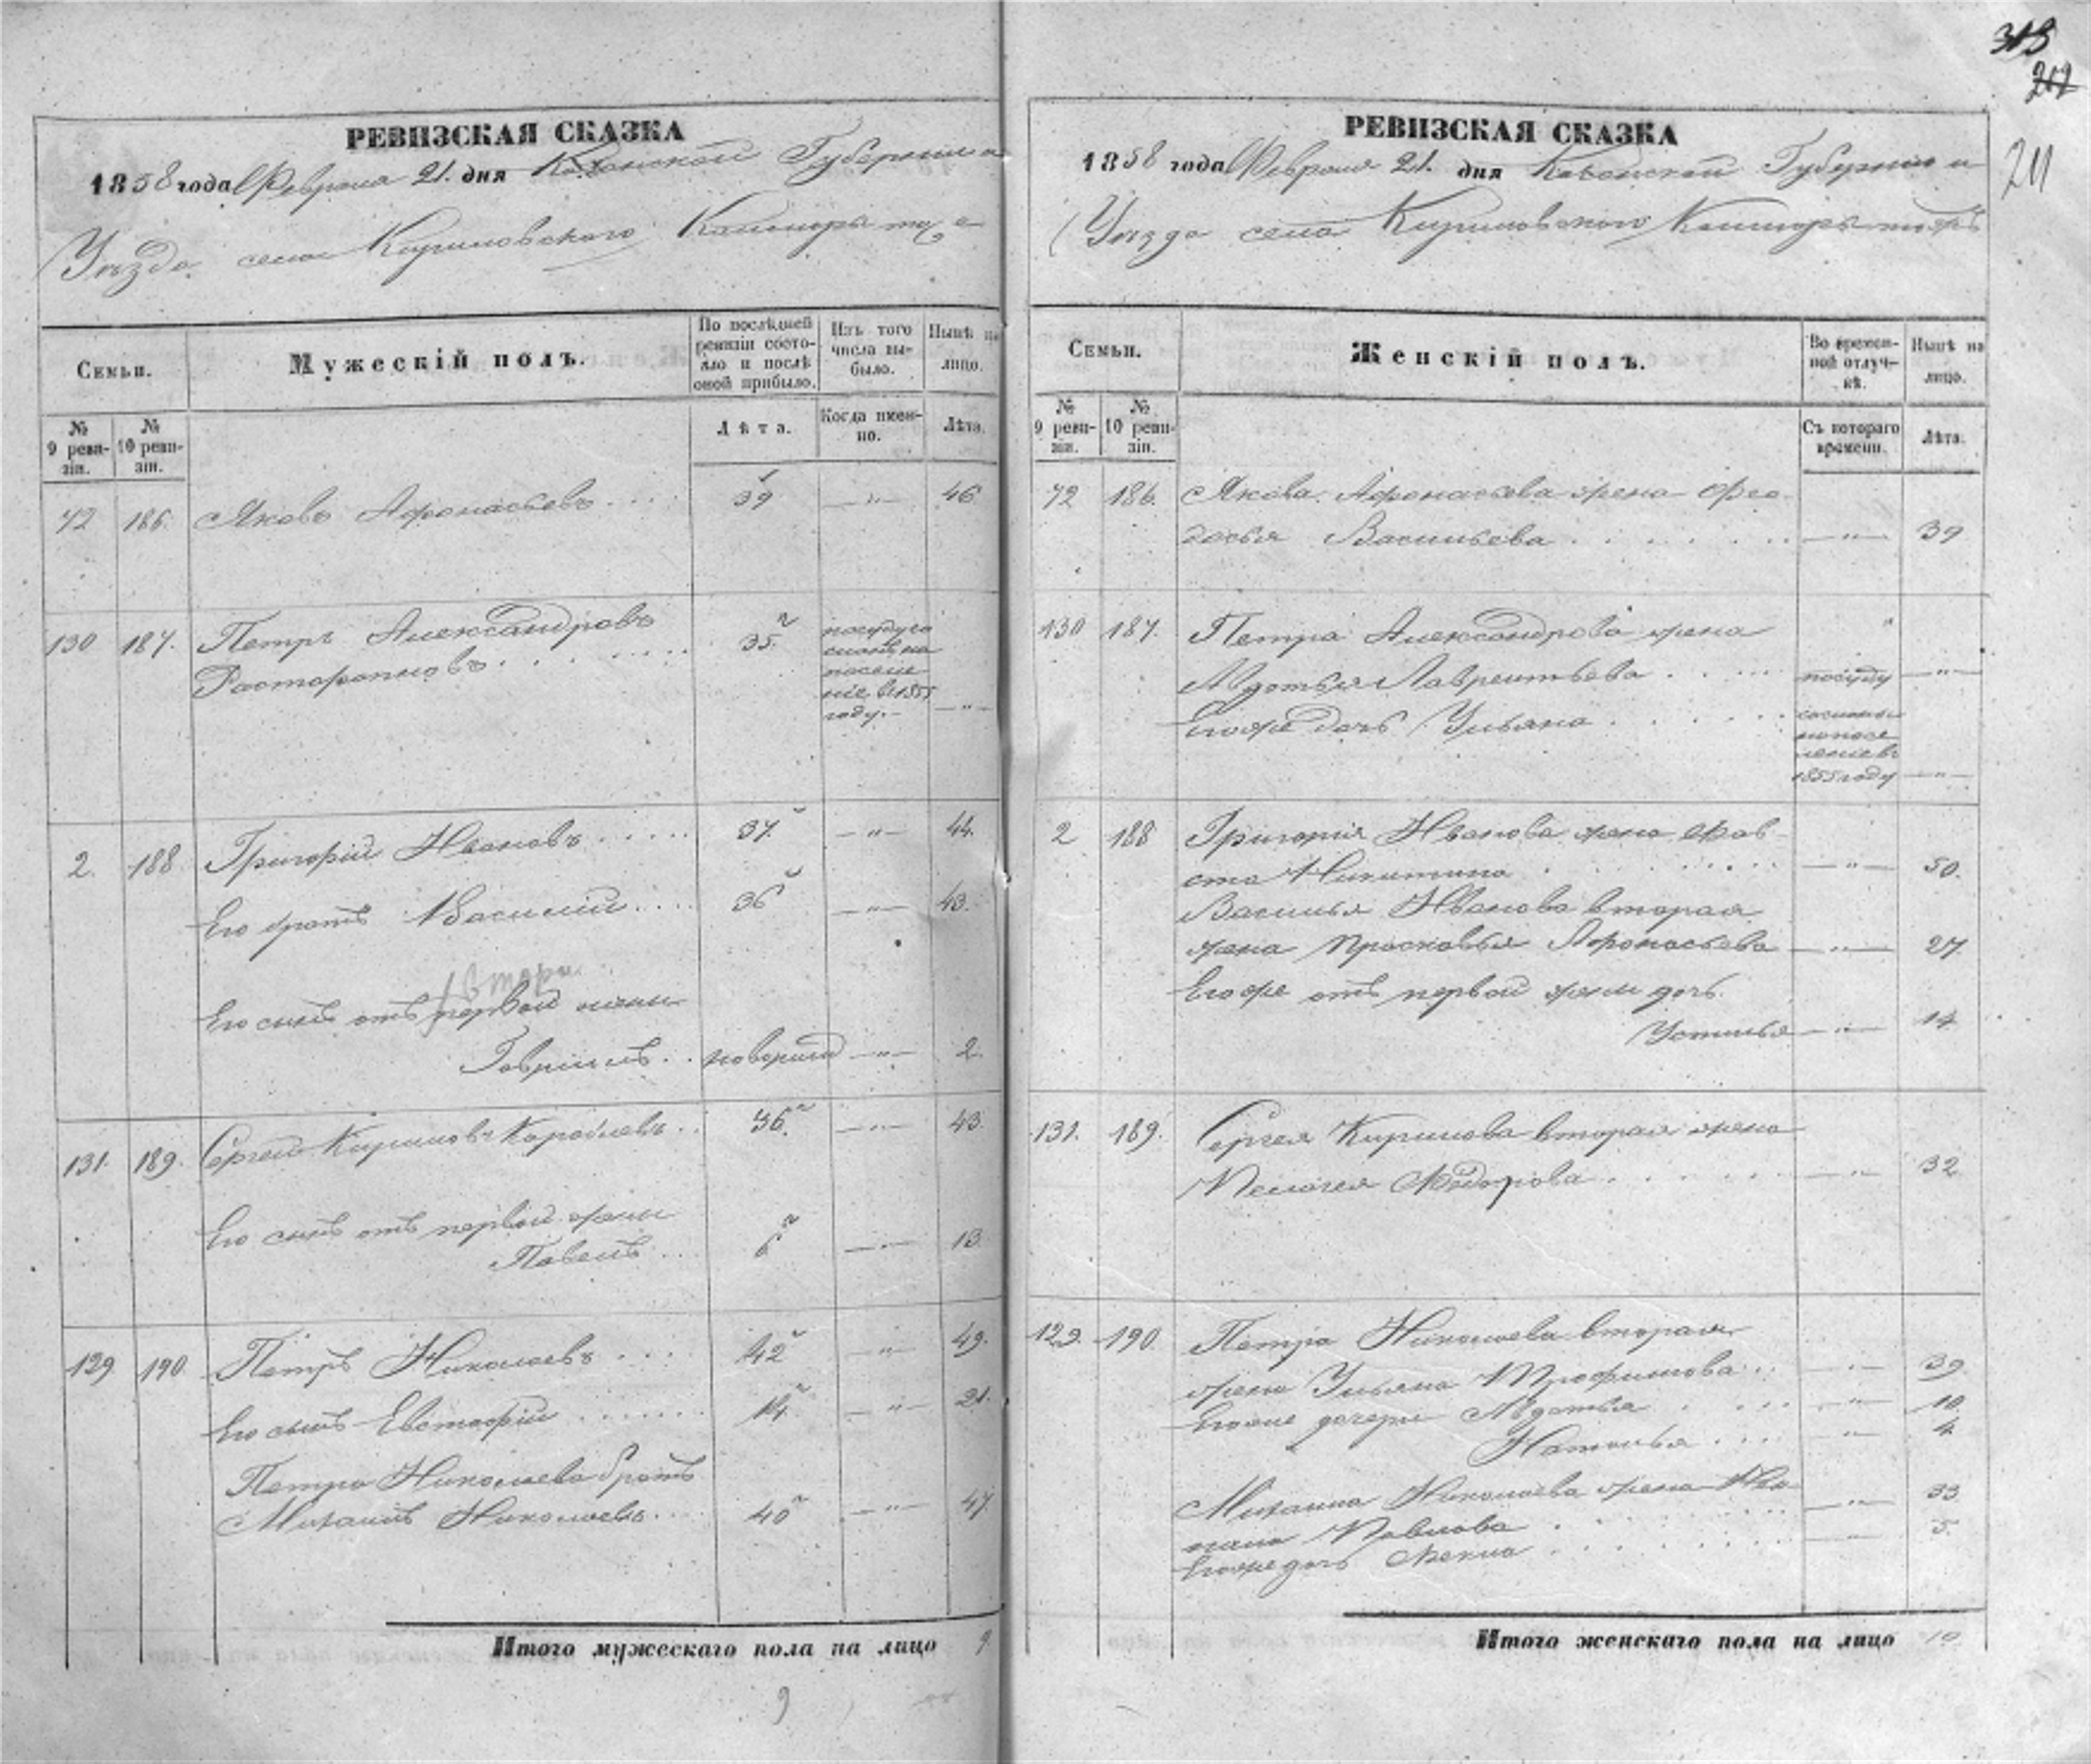 318
212
211
РЕВИЗСКАЯ СКАЗКА
1858 года Февраля 21. дня Казанской Губернии и
Уѣзда села Кириловскаго Конторы тожъ
Семьи.
Мужескій полъ.
По послѣдней ревизіи состояло и послѣ оной прибыло.
Изъ того числа выбыло.
Нынѣ на лицо.
№ 9 ревизіи.
№ 10 ревизіи.
Лѣта.
Когда именно.
Лѣта.
72 186. Яковъ Афонасьевъ 39 —„— 46.
130 187. Петръ Александровъ 35.
на посе-
ніе въ 1855
году. —„—
2. 188. Григорій Ивановъ 37. —„— 44.
Его братъ Василій 36 —„— 43.
втори
Его сынъ отъ первой жены
Гаврилъ новорожд —„— 2.
131. 189. Сергей Кириловъ Королевъ 36. —„— 43.
Его сынъ отъ первой жены
Павелъ 6 —„— 13.
129 190. Петръ Николаевъ 42 —„— 49.
Его сынъ Евстафій 14. —„— 21.
Петра Николаева братъ
Михаилъ Николаевъ 40 —„— 47.
Итого мужескаго пола на лицо 9
9
РЕВИЗСКАЯ СКАЗКА
1858 года Февраля 21. дня Казанской Губернии и
Уѣзда села Кириловскаго Конторы тожъ
Семьи.
Женскій полъ.
Во временной отлучкѣ.
Нынѣ на лицо.
№ 9 ревизіи.
№ 10 ревизіи.
Съ котораго времени.
Лѣта.
72 186. Якова Афонасьева жена Фео-
досья Васильева —„— 39
130 187. Петра Александрова жена
Авдотья Лаврентьева по суду —„—
Его же дочь Ульяна
1855 году —„—
2 188 Григорія Иванова жена Фав-
ста Никитина —„— 50.
Василья Иванова вторая
жена Прасковья Афонасьева —„— 27.
Его же отъ первой жены дочь
Устинья —„— 14
131. 189. Сергея Кирилова вторая жена
Пелагея Федорова —„— 32
129. 190 Петра Николаева вторая
жена Ульяна Трофимова —„— 39.
Его же дочери Авдотья —„— 10.
Наталья —„— 4.
Михаила Николаева жена —„— 33
Павлова
Его же дочь —„— 5.
Итого женскаго пола на лицо 10.